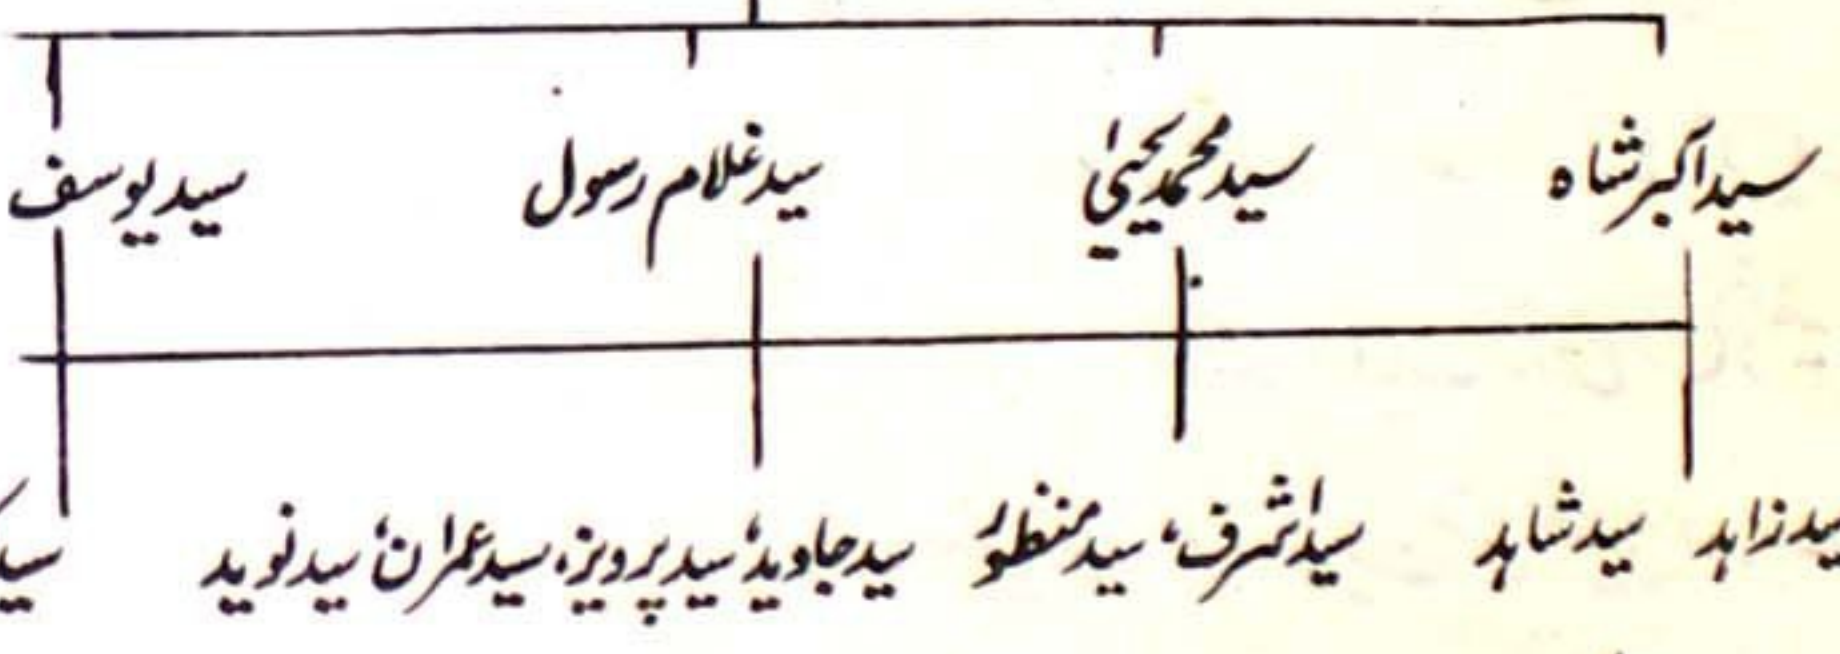 سید اکبر شاہ سید محمد یحییٰ سید غلام رسول سید یوسف
سید زاہد سید شاہد سید اشرف، سید منظور سید جاوید، سید پرویز، سید عمران، سید نوید